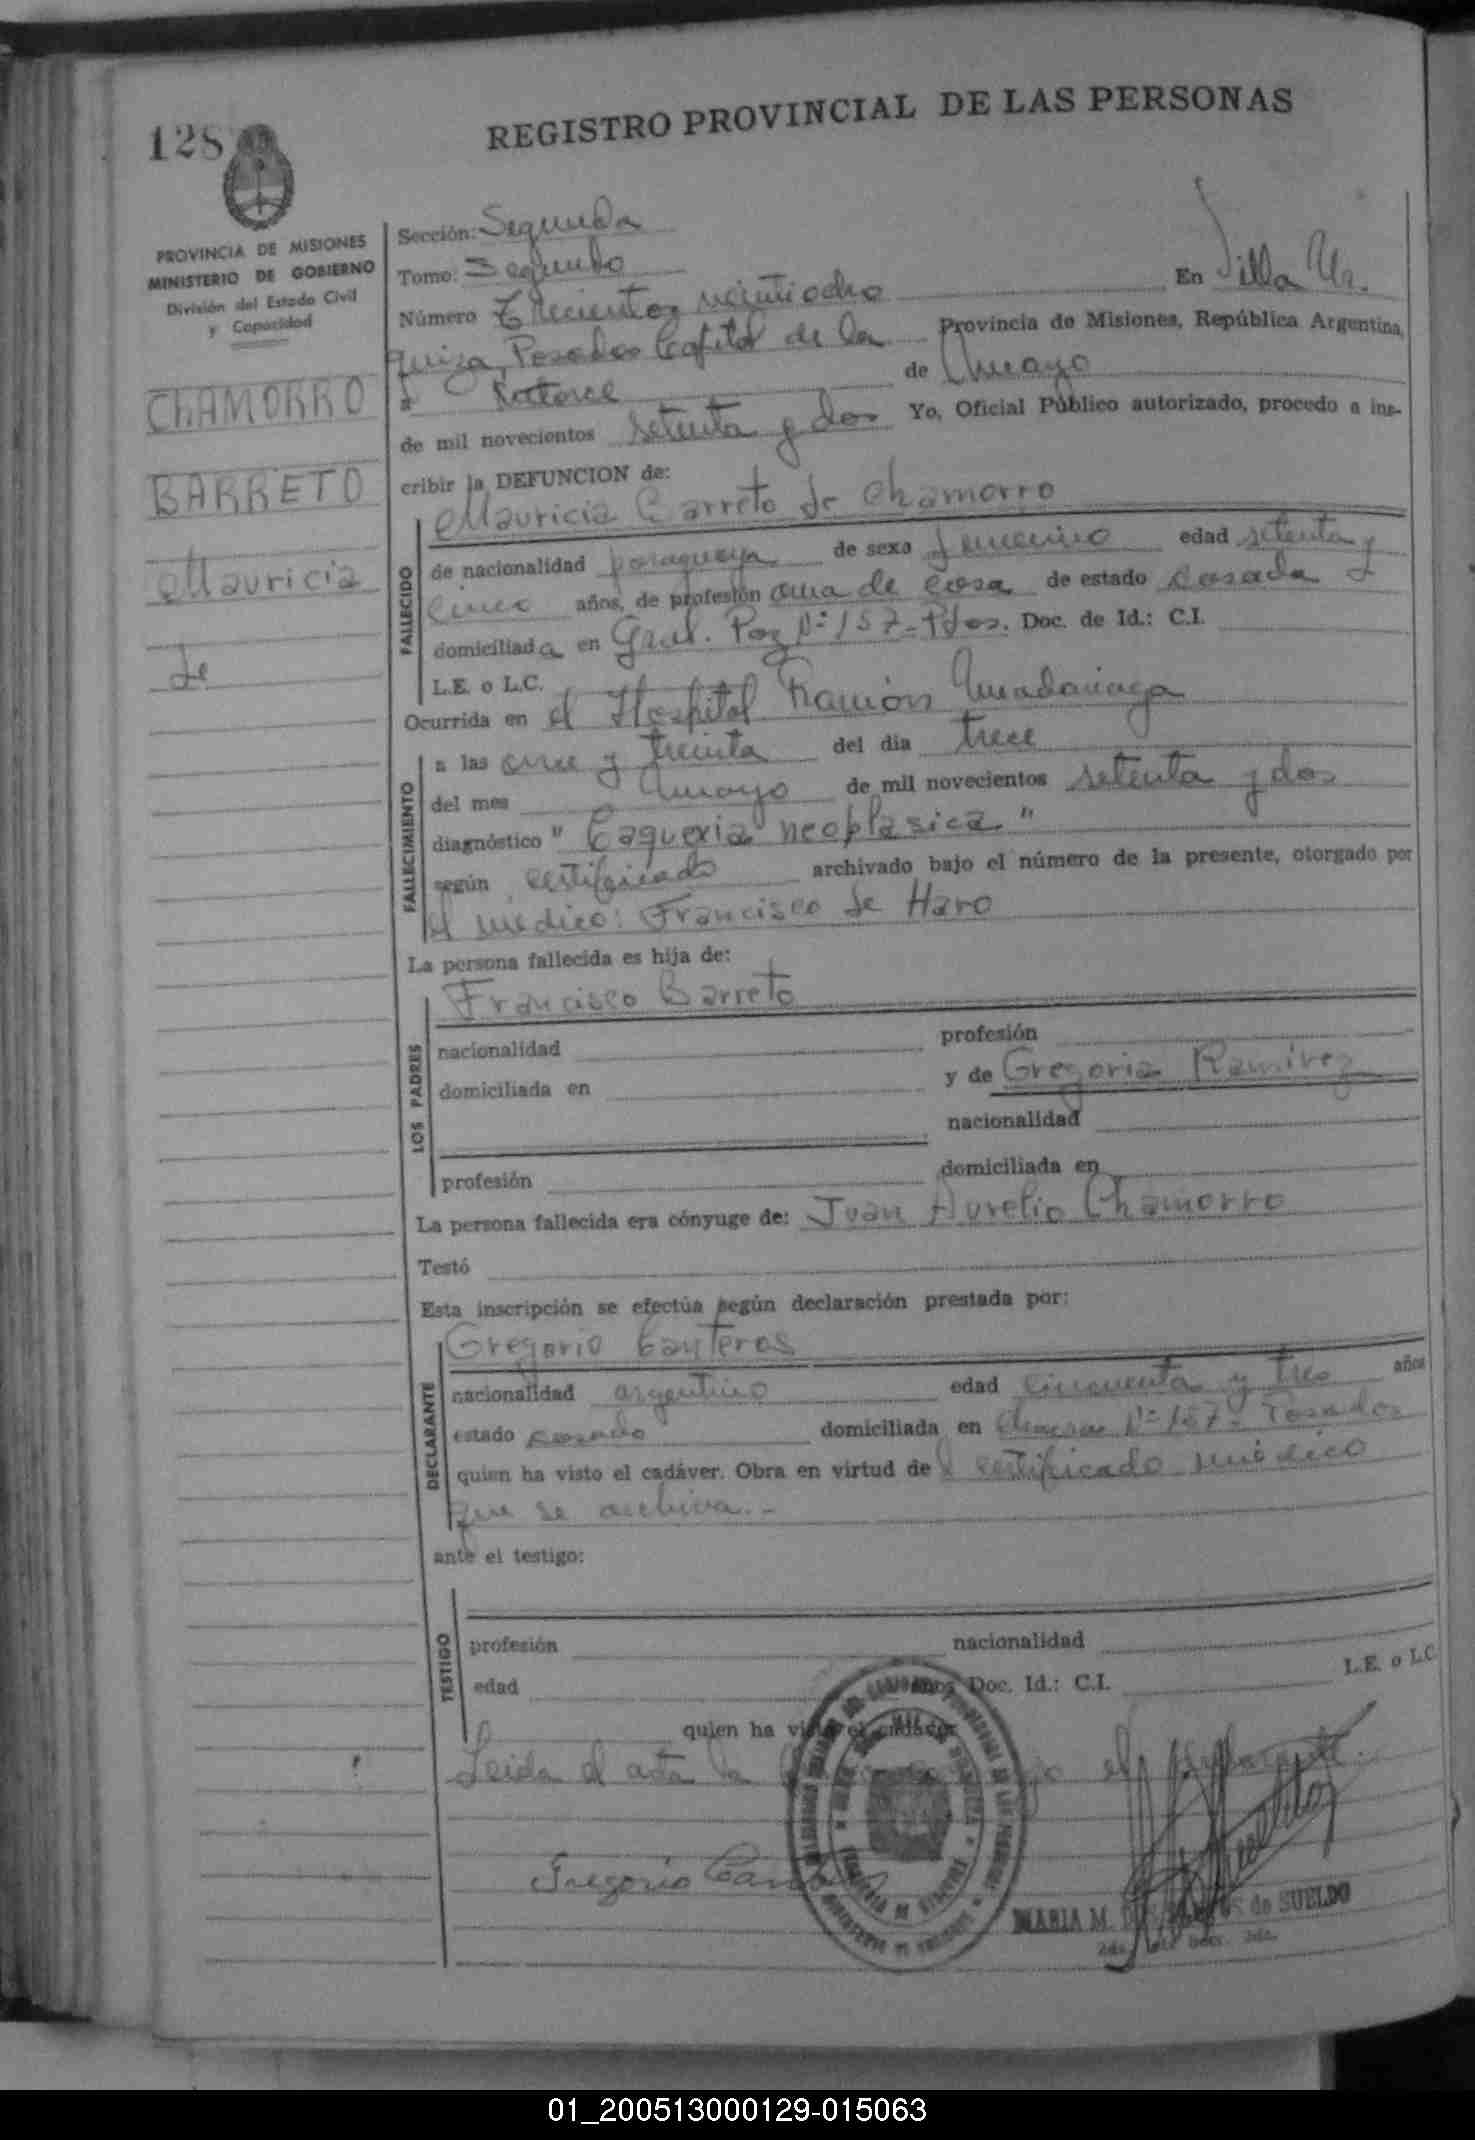 128
REGISTRO PROVINCIAL DE LAS PERSONAS
PROVINCIA DE MISIONES
MINISTERIO DE GOBIERNO
División del Estado Civil
y Capacidad
CHAMORRO
BARRETO
Mauricia
de
Sección: Segunda
Tomo: Segundo
Número Trecientos veintiocho En Villa Ur.
quiza, Posadas Capital de la Provincia de Misiones, República Argentina,
a catorce de Mayo
de mil novecientos setenta y dos Yo, Oficial Público autorizado, procedo a ins-
cribir la DEFUNCION de:
Mauricia Barreto de Chamorro
FALLECIDO
de nacionalidad paraguaya de sexo femenino edad setenta y
cinco años, de profesión ama de casa de estado casada
domiciliada en Gral. Paz Nº 157 - Pdas. Doc. de Id.: C.I.
L.E. o L.C.
Ocurrida en el Hospital Ramón Madariaga
FALLECIMIENTO
a las once y treinta del dia trece
del mes Mayo de mil novecientos setenta y dos
diagnóstico "Caquexia neoplasica"
según certificado archivado bajo el número de la presente, otorgado por
el medico: Francisco de Haro
La persona fallecida es hija de:
Francisco Barreto
LOS PADRES
nacionalidad profesión
domiciliada en y de Gregoria Ramirez
nacionalidad
profesión domiciliada en
La persona fallecida era cónyuge de: Juan Aurelio Chamorro
Testó
Esta inscripción se efectúa según declaración prestada por:
Gregorio Canteros
DECLARANTE
nacionalidad argentino edad cincuenta y tres años
estado casado domiciliada en Chacra Nº 157 - Posadas
quien ha visto el cadáver. Obra en virtud de certificado médico
que se archiva.-
ante el testigo:
TESTIGO
profesión nacionalidad
edad años Doc. Id.: C.I. L.E. o L.C.
quien ha visto el cadáver
Leida el acta la el
Gregorio
MARIA M. de SUELDO
01_200513000129-015063